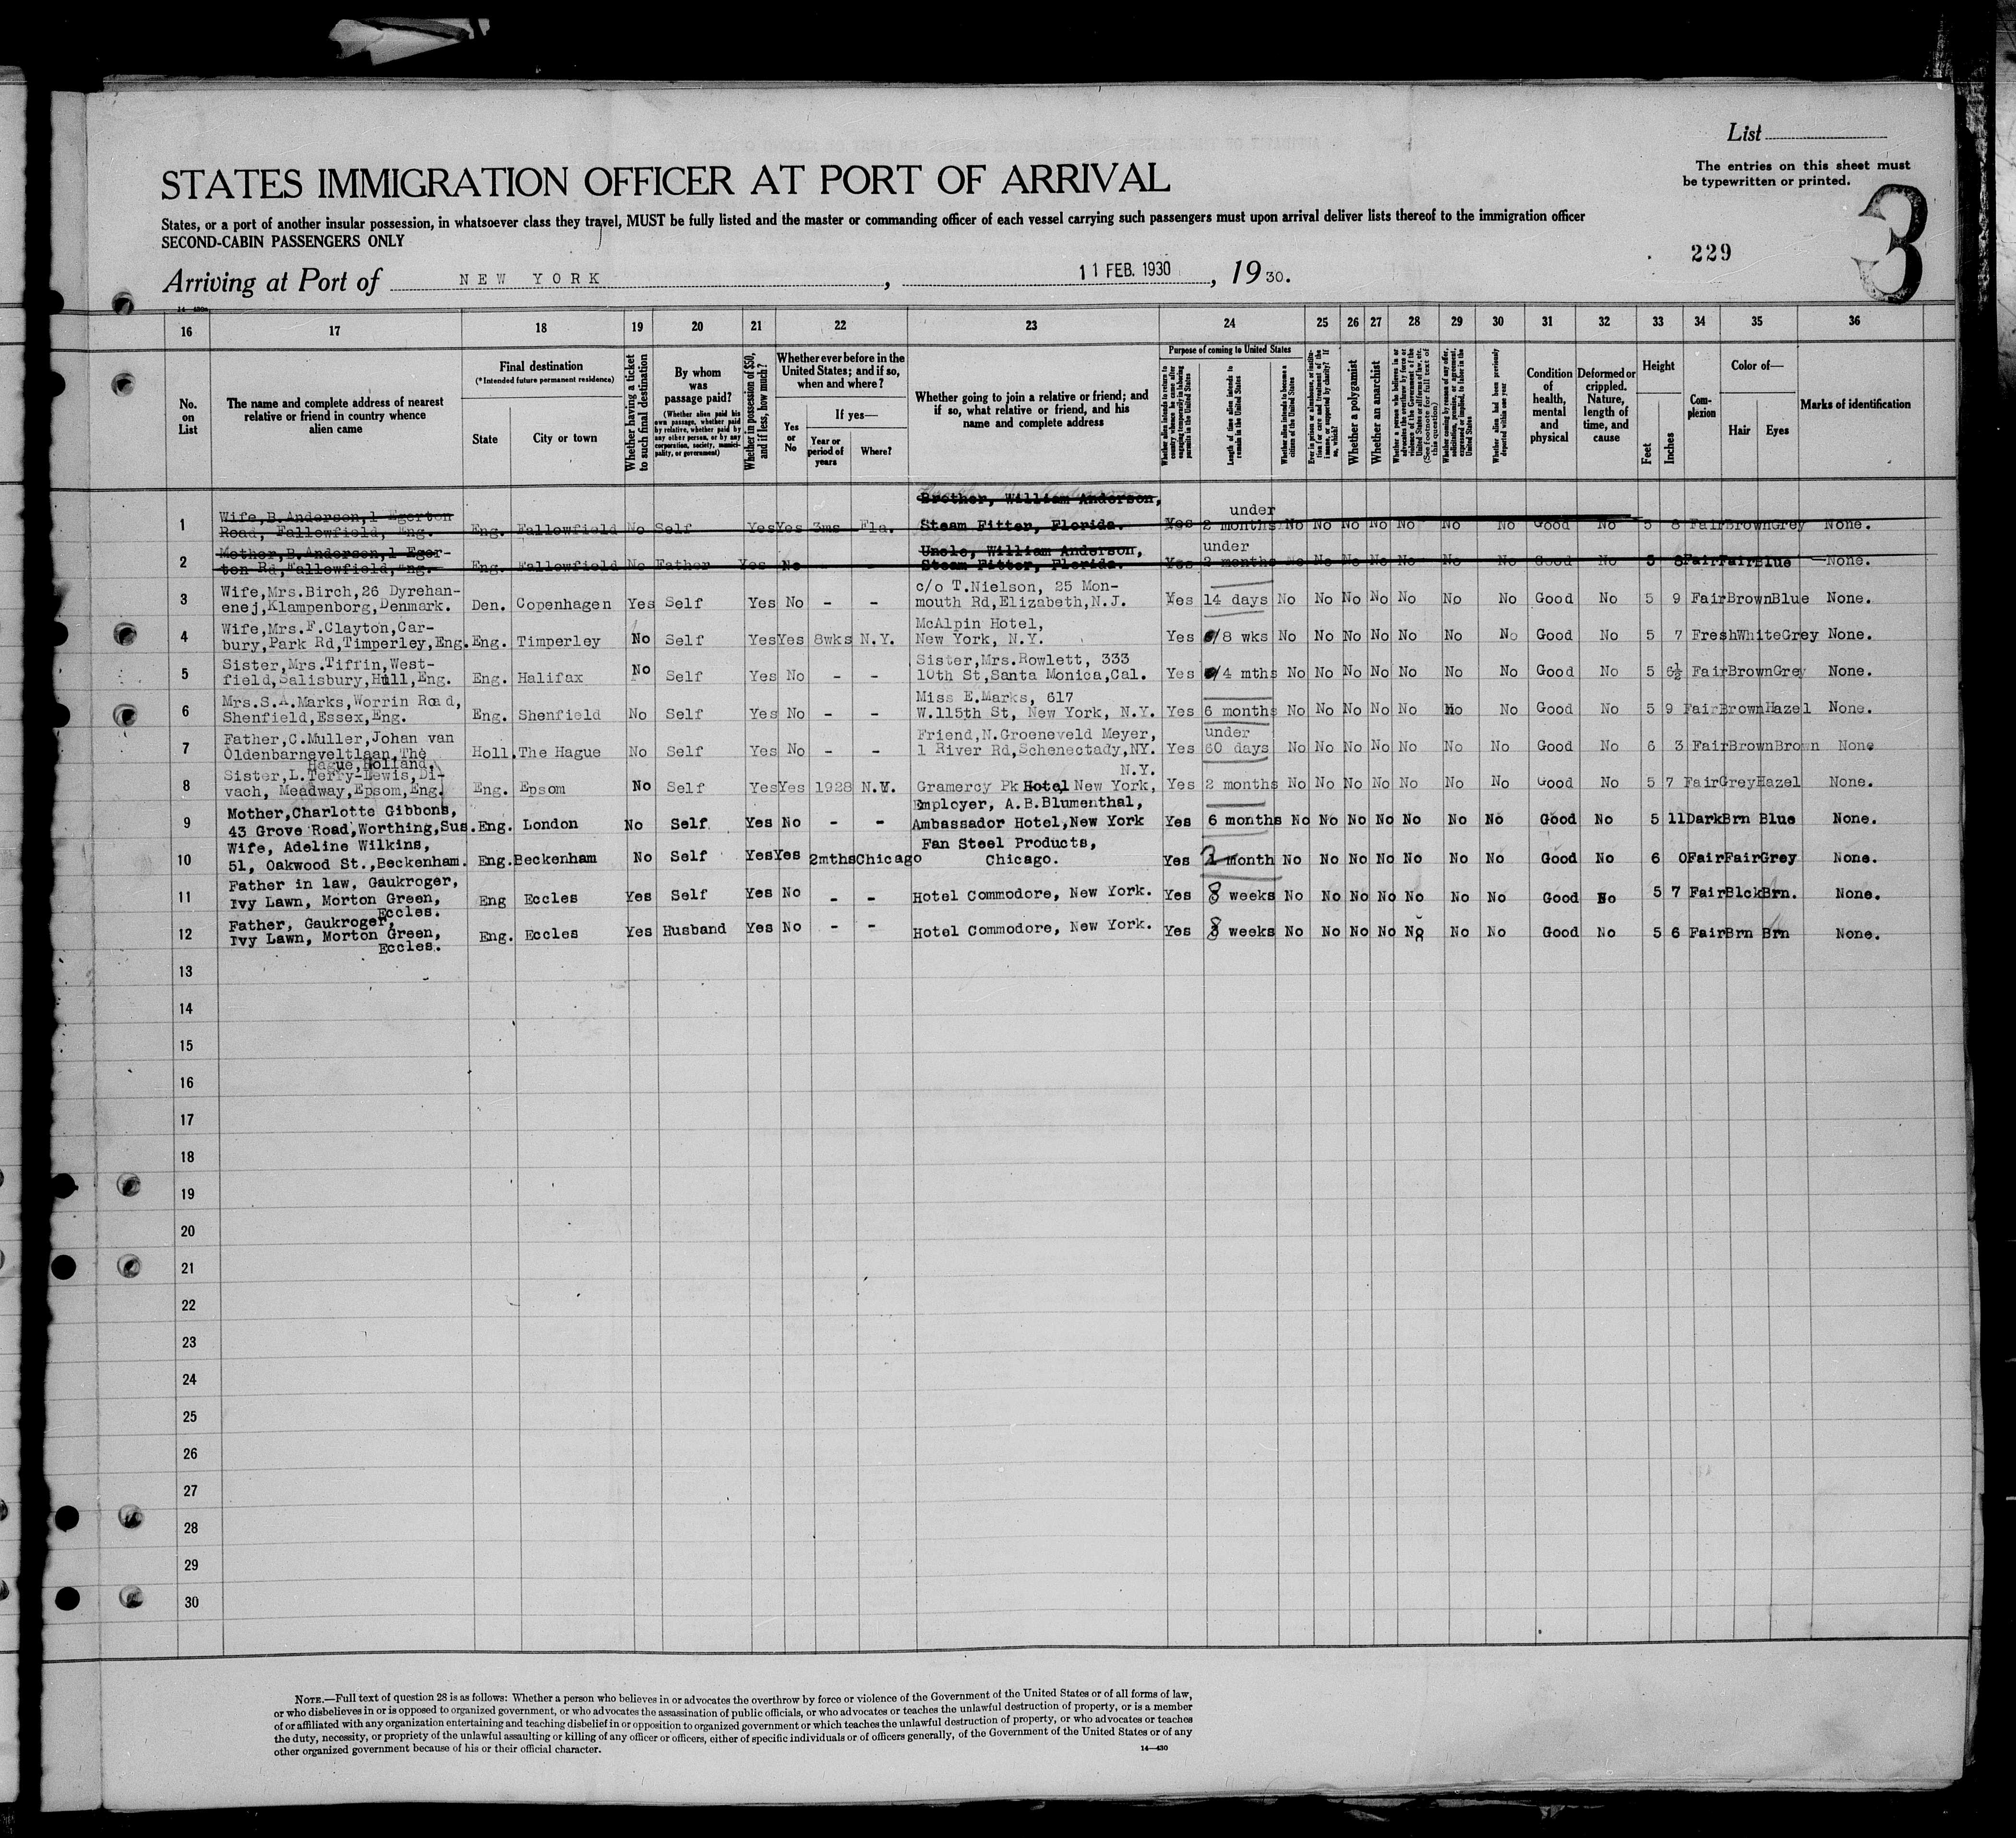 List
The entries on this sheet must
be typewritten or printed.
STATES IMMIGRATION OFFICER AT PORT OF ARRIVAL
3
States, or a port of another insular possession, in whatsoever class they travel, MUST be fully listed and the master or commanding officer of each vessel carrying such passengers must upon arrival deliver lists thereof to the immigration officer
SECOND-CABIN PASSENGERS ONLY
229
Arriving at Port of NEW YORK, 11 FEB. 1930, 1930.
16 17 18 19 20 21 22 23 24 25 26 27 28 29 30 31 32 33 34 35 36
No. on List
The name and complete address of nearest relative or friend in country whence alien came
Final destination
(*Intended future permanent residence)
State
City or town
Whether having a ticket to such final destination
By whom was passage paid?
(Whether alien paid his own passage, whether paid by relative, whether paid by any other person, or by any corporation, society, municipality, or government)
Whether in possession of $50, and if less, how much?
Whether ever before in the United States; and if so, when and where?
Yes or No
If yes—
Year or period of years
Where?
Whether going to join a relative or friend; and if so, what relative or friend, and his name and complete address
Purpose of coming to United States
Length of time alien intends to remain in the United States
Whether alien intends to become a citizen of the United States
Whether a polygamist
Whether an anarchist
Whether alien had been previously deported within one year
Condition of health, mental and physical
Deformed or crippled. Nature, length of time, and cause
Height
Feet
Inches
Complexion
Color of—
Hair
Eyes
Marks of identification
1 Wife, B. Anderson, 1 Egerton Road, Fallowfield, Eng. Eng. Fallowfield No Self Yes Yes 3ms Fla. Brother, William Anderson, Steam Fitter, Florida. Yes under 2 months No No No No No No No Good No 5 8 Fair Brown Grey None.
2 Mother, B. Anderson, 1 Egerton Rd, Fallowfield, Eng. Eng. Fallowfield No Father Yes No Uncle, William Anderson, Steam Fitter, Florida. Yes under 2 months No No No No No No No Good No 5 8 Fair Fair Blue None.
3 Wife, Mrs. Birch, 26 Dyrehanenej, Klampenborg, Denmark. Den. Copenhagen Yes Self Yes No - - c/o T. Nielson, 25 Monmouth Rd, Elizabeth, N.J. Yes 14 days No No No No No No No Good No 5 9 Fair Brown Blue None.
4 Wife, Mrs. F. Clayton, Carbury, Park Rd, Timperley, Eng. Eng. Timperley No Self Yes Yes 8wks N.Y. McAlpin Hotel, New York, N.Y. Yes 8 wks No No No No No No No Good No 5 7 Fresh White Grey None.
5 Sister, Mrs. Tiffin, Westfield, Salisbury, Hull, Eng. Eng. Halifax No Self Yes No - - Sister, Mrs. Rowlett, 333 10th St, Santa Monica, Cal. Yes 4 mths No No No No No No No Good No 5 6½ Fair Brown Grey None.
6 Mrs. S.A. Marks, Worrin Road, Shenfield, Essex, Eng. Eng. Shenfield No Self Yes No - - Miss E. Marks, 617 W. 115th St, New York, N.Y. Yes 6 months No No No No No No No Good No 5 9 Fair Brown Hazel None.
7 Father, C. Muller, Johan van Oldenbarneveltlaan, The Hague, Holland. Holl. The Hague No Self Yes No - - Friend, N. Groeneveld Meyer, 1 River Rd, Schenectady, NY. Yes under 60 days No No No No No No No Good No 6 3 Fair Brown Brown None
8 Sister, L. Terry-Lewis, Divach, Meadway, Epsom, Eng. Eng. Epsom No Self Yes Yes 1928 N.Y. Gramercy Pk Hotel New York, N.Y. Yes 2 months No No No No No No No Good No 5 7 Fair Grey Hazel None.
9 Mother, Charlotte Gibbons, 43 Grove Road, Worthing, Sus. Eng. London No Self Yes No - - Employer, A.B. Blumenthal, Ambassador Hotel, New York Yes 6 months No No No No No No No Good No 5 11 Dark Brn Blue None.
10 Wife, Adeline Wilkins, 51, Oakwood St., Beckenham. Eng. Beckenham No Self Yes Yes 2mths Chicago Fan Steel Products, Chicago. Yes 2 month No No No No No No No Good No 6 0 Fair Fair Grey None.
11 Father in law, Gaukroger, Ivy Lawn, Morton Green, Eccles. Eng Eccles Yes Self Yes No - - Hotel Commodore, New York. Yes 8 weeks No No No No No No No Good No 5 7 Fair Blck Brn. None.
12 Father, Gaukroger, Ivy Lawn, Morton Green, Eccles. Eng. Eccles Yes Husband Yes No - - Hotel Commodore, New York. Yes 8 weeks No No No No No No No Good No 5 6 Fair Brn Brn None.
13
14
15
16
17
18
19
20
21
22
23
24
25
26
27
28
29
30
NOTE.—Full text of question 28 is as follows: Whether a person who believes in or advocates the overthrow by force or violence of the Government of the United States or of all forms of law,
or who disbelieves in or is opposed to organized government, or who advocates the assassination of public officials, or who advocates or teaches the unlawful destruction of property, or is a member
of or affiliated with any organization entertaining and teaching disbelief in or opposition to organized government or which teaches the unlawful destruction of property, or who advocates or teaches
the duty, necessity, or propriety of the unlawful assaulting or killing of any officer or officers, either of specific individuals or of officers generally, of the Government of the United States or of any
other organized government because of his or their official character.
14—430